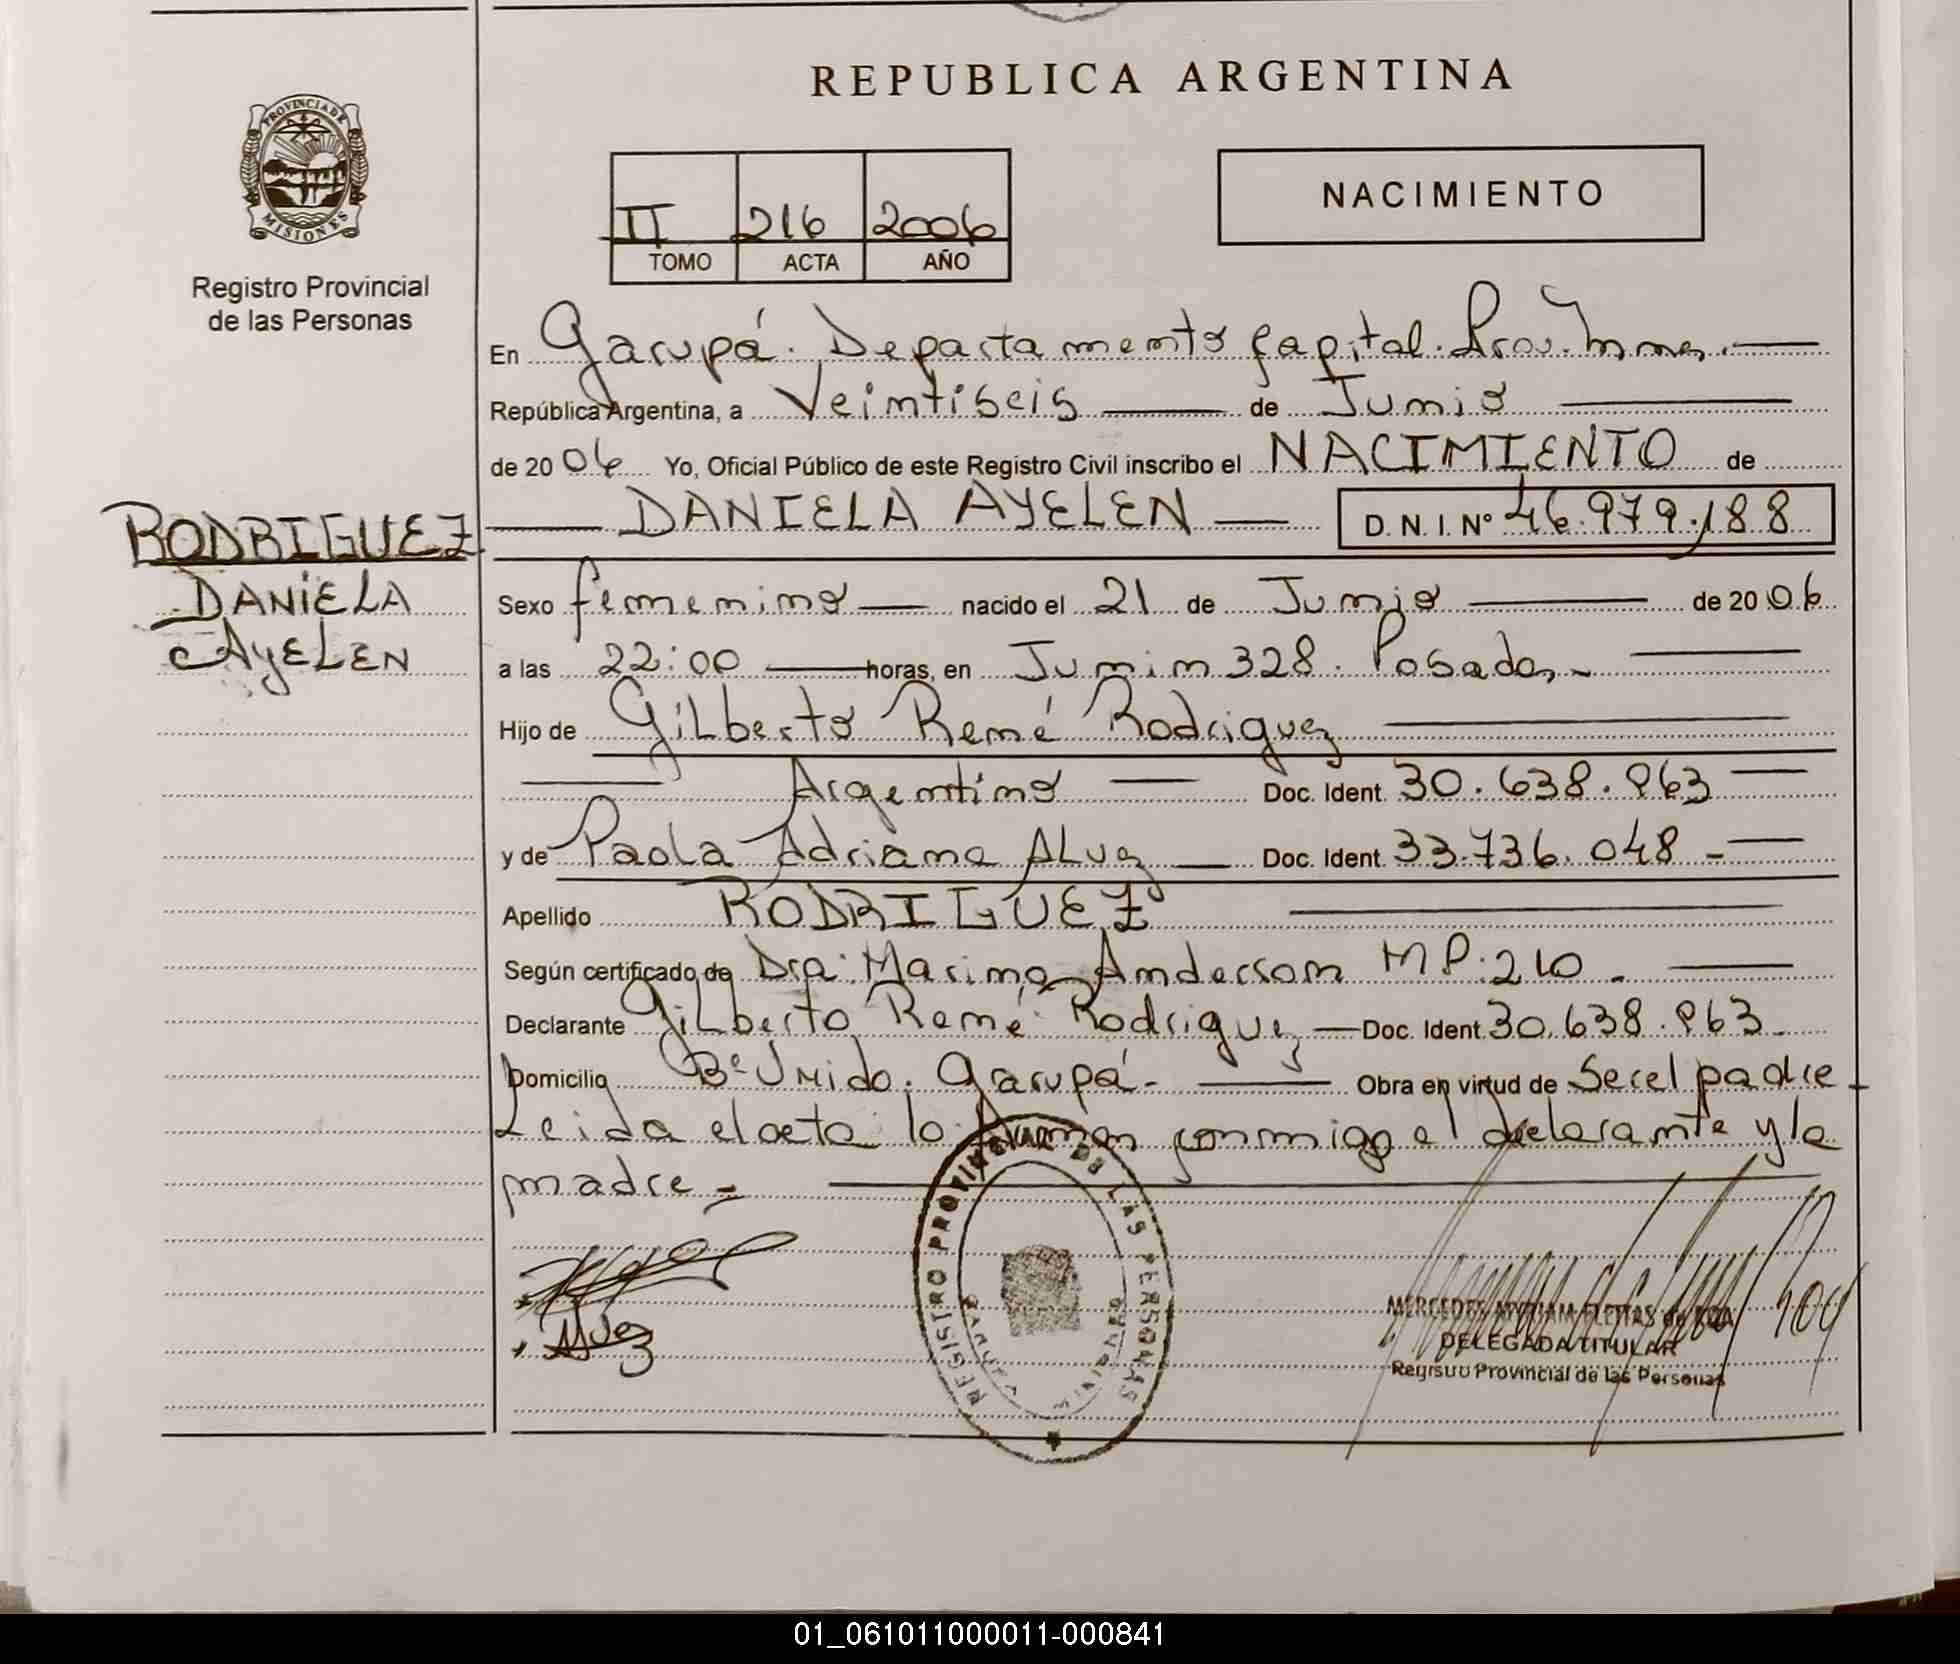 REPUBLICA ARGENTINA
PROVINCIA DE
MISIONES
Registro Provincial
de las Personas
II 216 2006
TOMO ACTA AÑO
NACIMIENTO
En Garupá. Departamento Capital. Prov. Mnes.
República Argentina, a Veintiseis de Junio
de 2006 Yo, Oficial Público de este Registro Civil inscribo el NACIMIENTO de
DANIELA AYELEN D. N. I. N° 46.979.188
RODRIGUEZ
DANIELA
AYELEN
Sexo femenino nacido el 21 de Junio de 2006
a las 22:00 horas, en Junin 328. Posadas.-
Hijo de Gilberto René Rodriguez
Argentino Doc. Ident. 30.638.963
y de Paola Adriana Alvez Doc. Ident. 33.736.048 -
Apellido RODRIGUEZ
Según certificado de Dra: Marina Andersson MP: 210.
Declarante Gilberto René Rodriguez Doc. Ident. 30.638.963.
Domicilio B° Unido. Garupá.- Obra en virtud de Ser el padre -
Leida el acta lo firman conmigo el declarante y la
madre -
REGISTRO PROVINCIAL DE LAS PERSONAS
Alvez
MERCEDES MYRIAM FLEITAS de ROA
DELEGADA TITULAR
Registro Provincial de las Personas
01_061011000011-000841